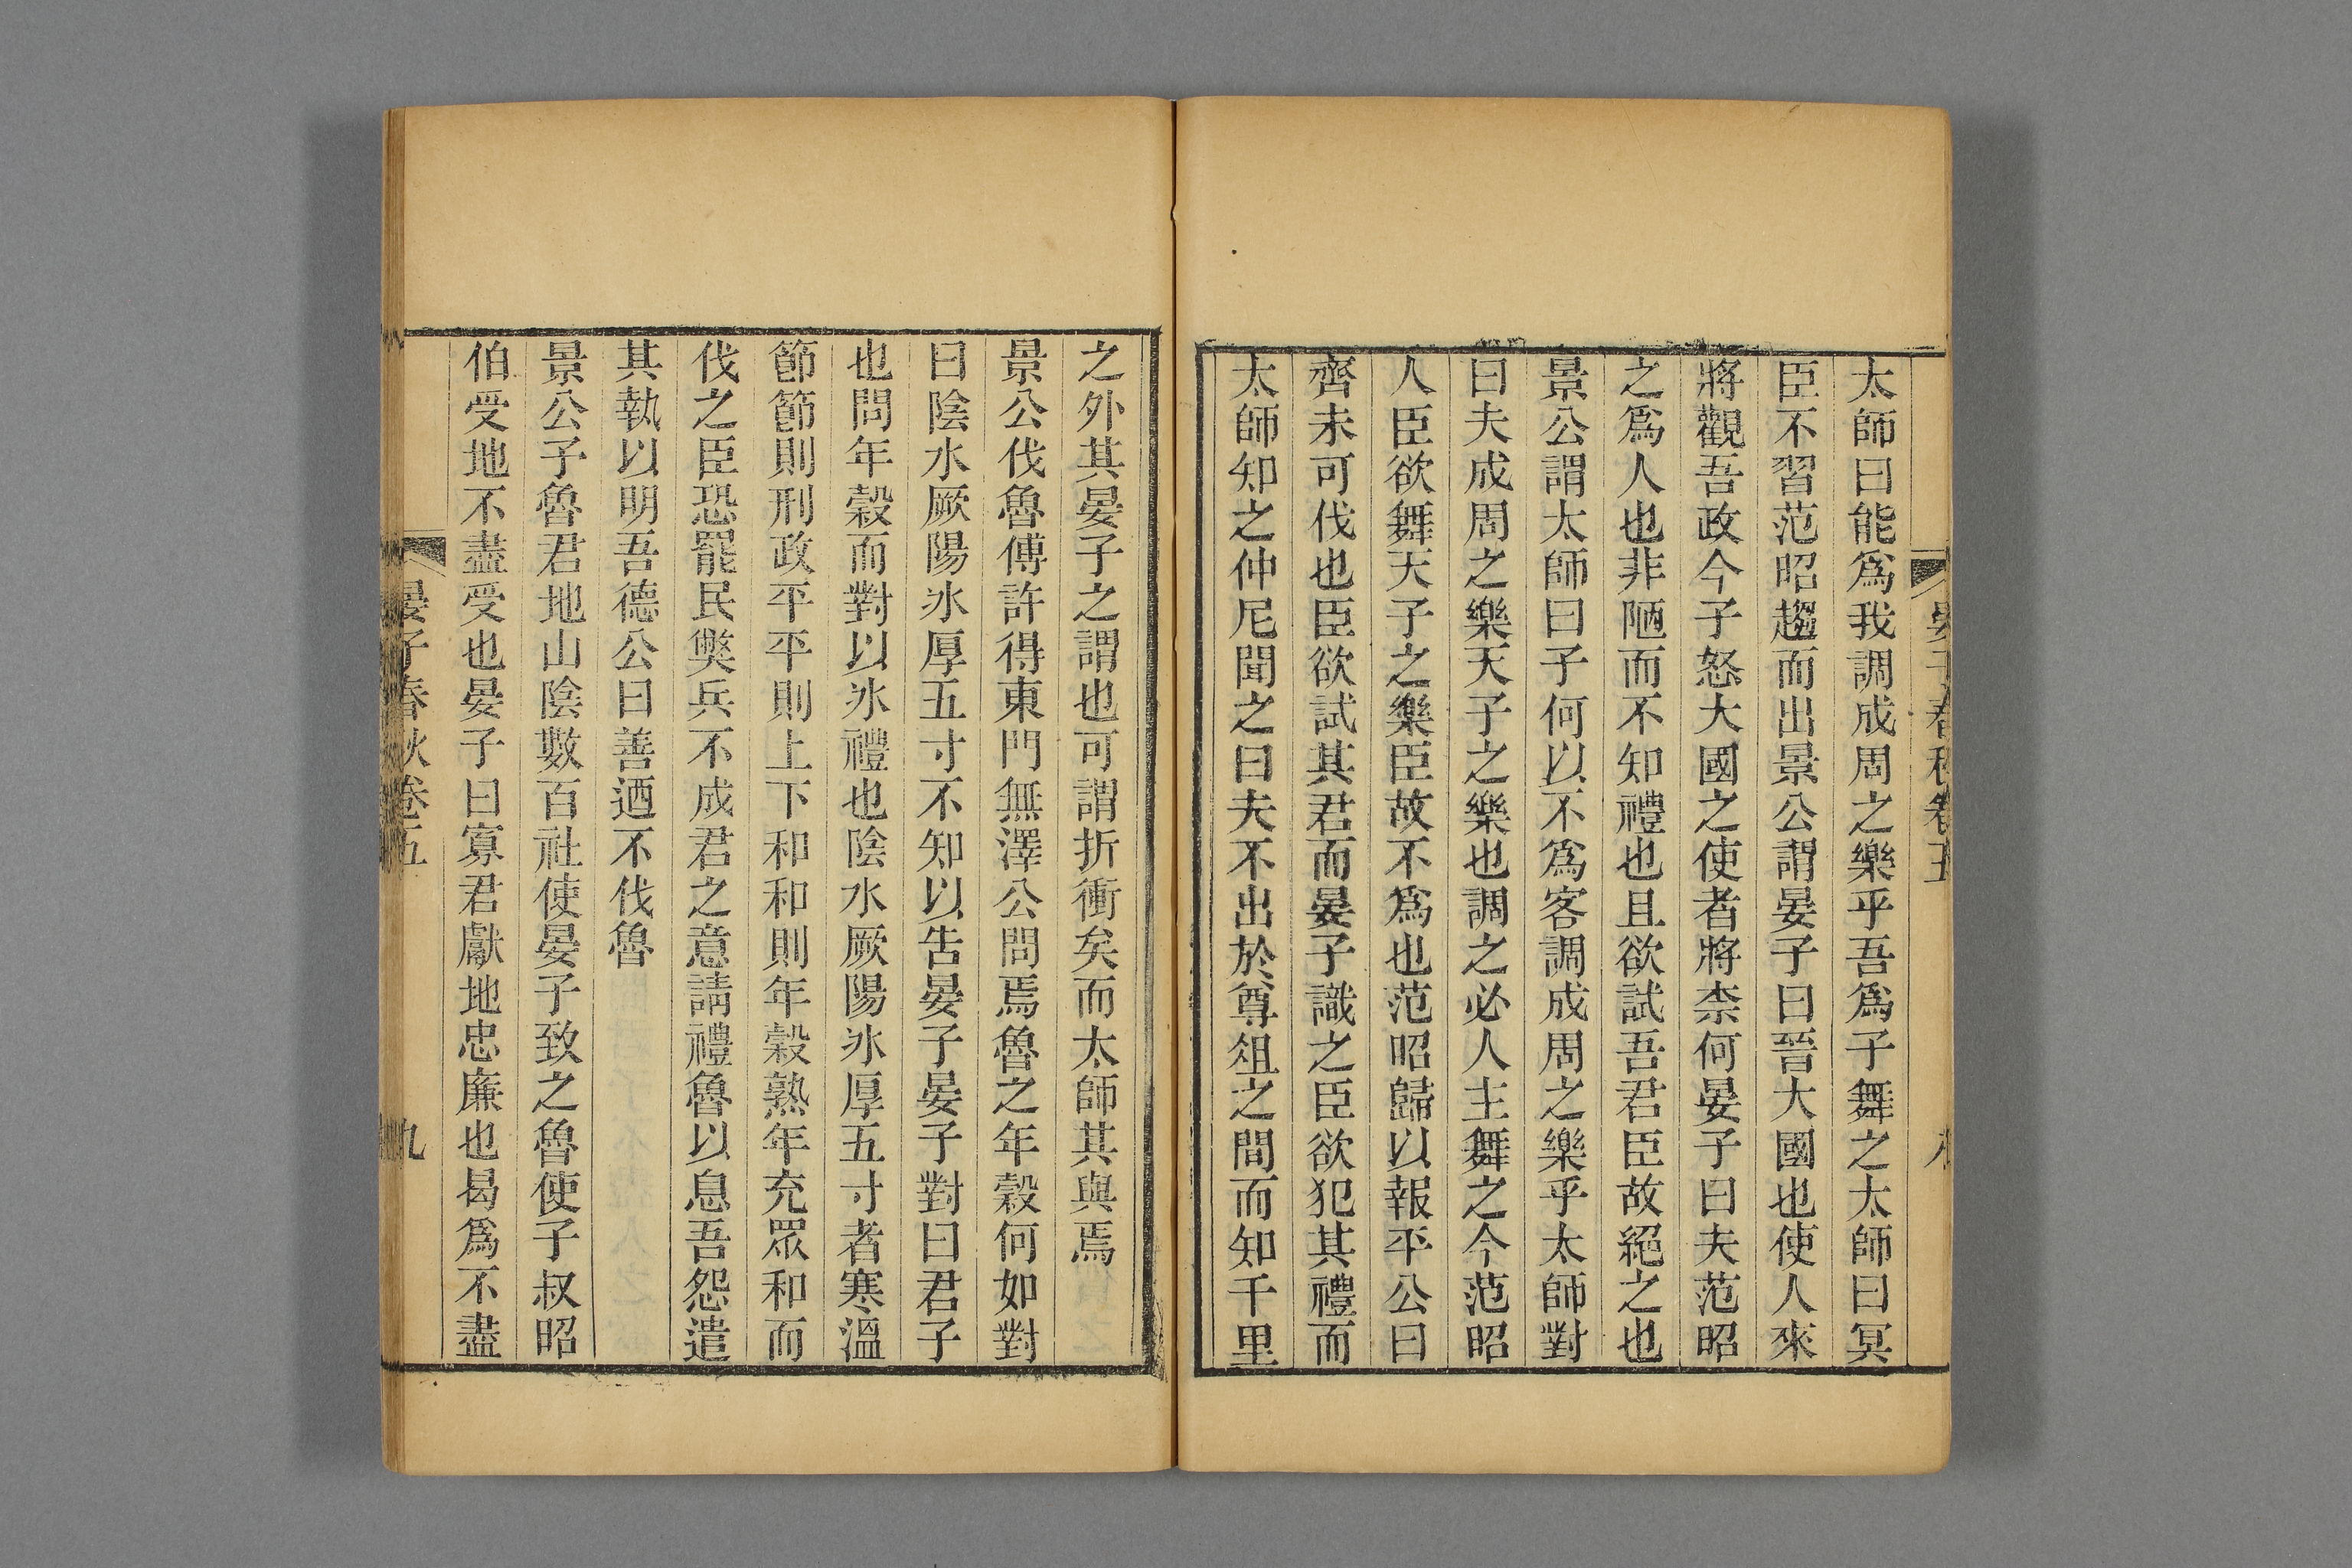 太師曰能爲我調成周之樂乎吾爲子舞之太師曰冥
臣不習范昭趨而出景公謂晏子曰晉大國也使人來
將觀吾政今子怒大國之使者將柰何晏子曰夫范昭
之爲人也非陋而不知禮也且欲試吾君臣故絕之也
景公謂太師曰子何以不爲客調成周之樂乎太師對
曰夫成周之樂天子之樂也調之必人主舞之今范昭
人臣欲舞天子之樂臣故不爲也范昭歸以報平公曰
齊未可伐也臣欲試其君而晏子識之臣欲犯其禮而
太師知之仲尼聞之曰夫不出於尊俎之間而知千里
之外其晏子之謂也可謂折衝矣而太師其與焉
景公伐魯傅許得東門無澤公問焉魯之年穀何如對
曰陰水厥陽冰厚五寸不知以告晏子晏子對曰君子
也問年穀而對以冰禮也陰水厥陽冰厚五寸者寒溫
節節則刑政平平則上下和和則年穀熟年充眾和而
伐之臣恐罷民獘兵不成君之意請禮魯以息吾怨遣
其執以明吾德公曰善迺不伐魯
景公子魯君地山陰數百社使晏子致之魯使子叔昭
伯受地不盡受也晏子曰寡君獻地忠廉也曷爲不盡
晏子春秋卷五
九